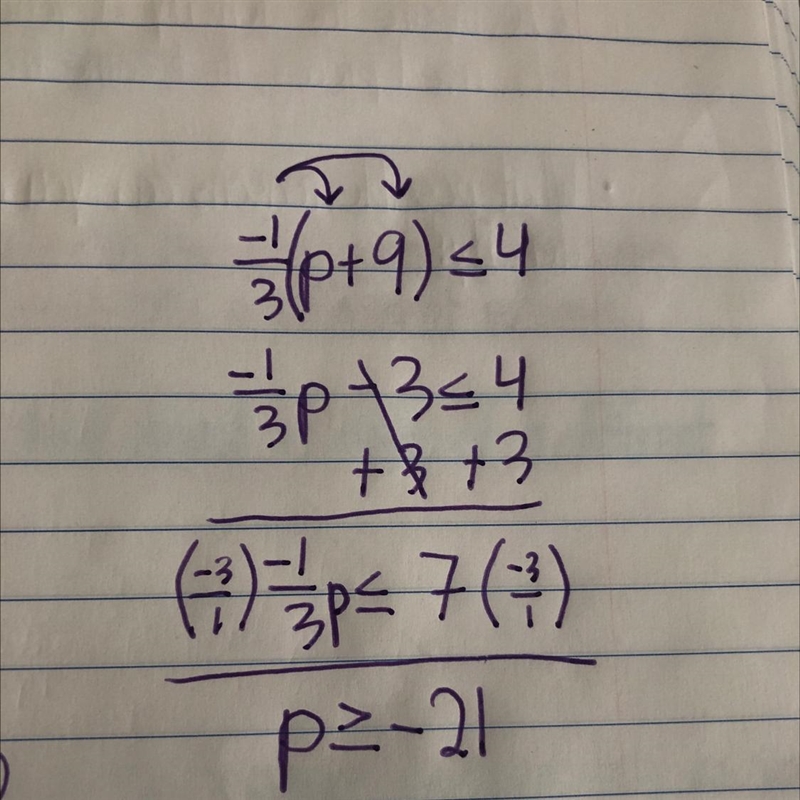 -1/3(p+9) ≤ 4
-1/3p -3 ≤ 4
+3 +3
(-3/1) -1/3p ≤ 7 (-3/1)
p ≥ -21